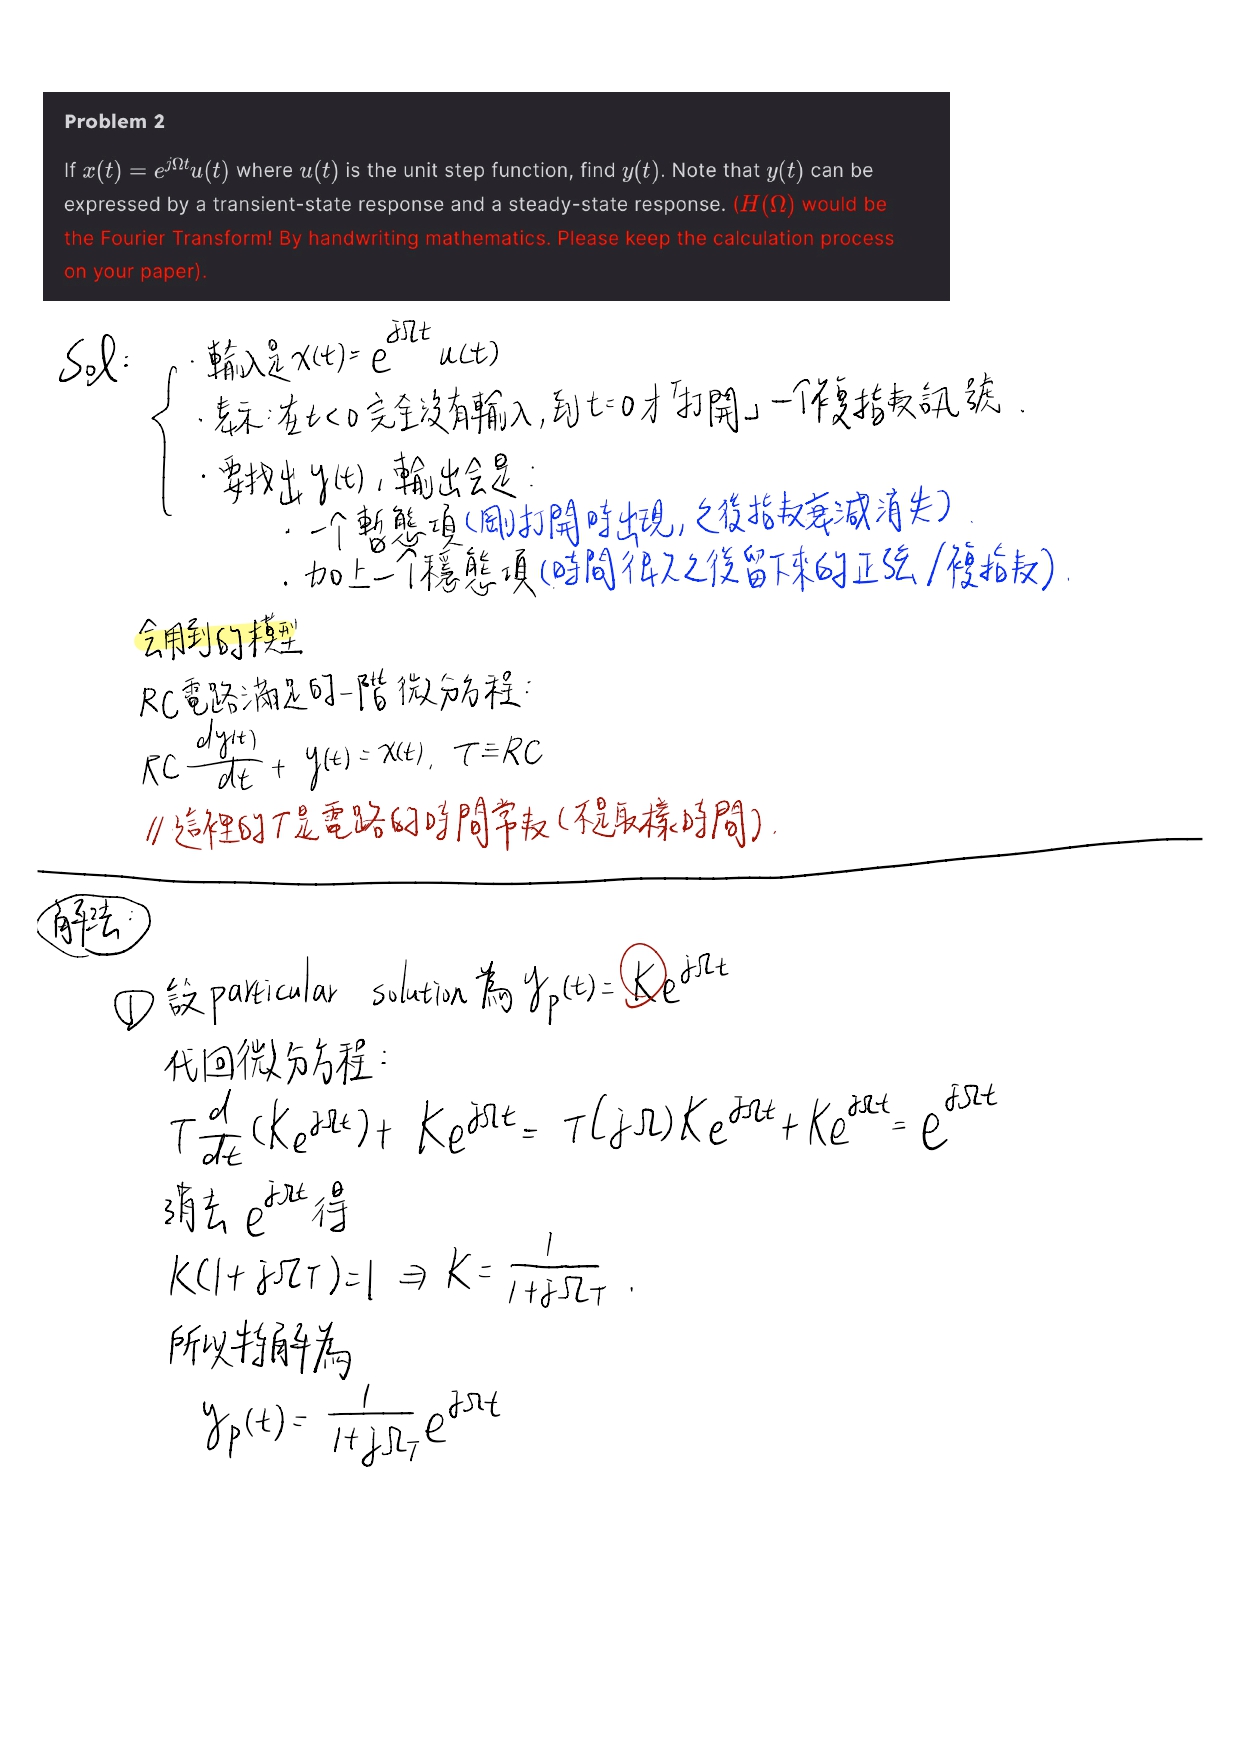 Problem 2
If x(t) = e^{jΩt}u(t) where u(t) is the unit step function, find y(t). Note that y(t) can be
expressed by a transient-state response and a steady-state response. (H(Ω) would be
the Fourier Transform! By handwriting mathematics. Please keep the calculation process
on your paper).
Sol:
· 輸入是 x(t) = e^{jΩt} u(t)
· 表示:在t<0完全沒有輸入,到t=0才「打開」一个複指数訊號.
· 要找出y(t),輸出会是:
· 一个暫態項(剛打開時出現,之後指数衰減消失).
· 加上一个穩態項(時間很久之後留下來的正弦/複指数).
会用到的模型
RC電路滿足的一階微分方程:
RC dy(t)/dt + y(t) = x(t), T≡RC
//這裡的T是電路的時間常数(不是取樣時間).
解法:
① 設particular solution為 y_p(t) = Ke^{jΩt}
代回微分方程:
T d/dt (Ke^{jΩt}) + Ke^{jΩt} = T(jΩ)Ke^{jΩt} + Ke^{jΩt} = e^{jΩt}
消去 e^{jΩt} 得
K(1+jΩT)=1 ⇒ K = 1/(1+jΩT).
所以特解為
y_p(t) = 1/(1+jΩT) e^{jΩt}